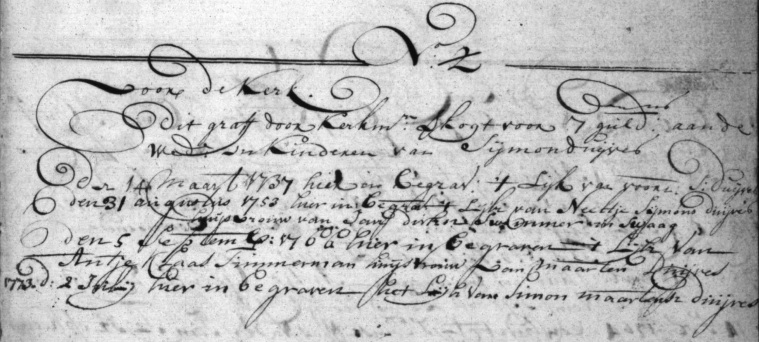 N:o 4
Voor de Kerk.
Dit graf door Kerkm:rn verkogt voor 7 guld: aan de
Wed: en Kinderen van Sijmon duijves
Den 14 Maart 1737 hier in Begrav: 't Lijk van voorn: S: Duijves
den 31 augustus 1753 hier in begrav 't Lijk van Neeltje Sijmons duijves
huijsvrouw van Jan dirksz Schaag
den 5 September: 1766 hier in begraven 't Lijk van
Antje Klaas Timmerman huijsvrouw van maarten Duijves
1773 d: 2 Junij hier in begraven het Lijk van Simon maartensz duijves